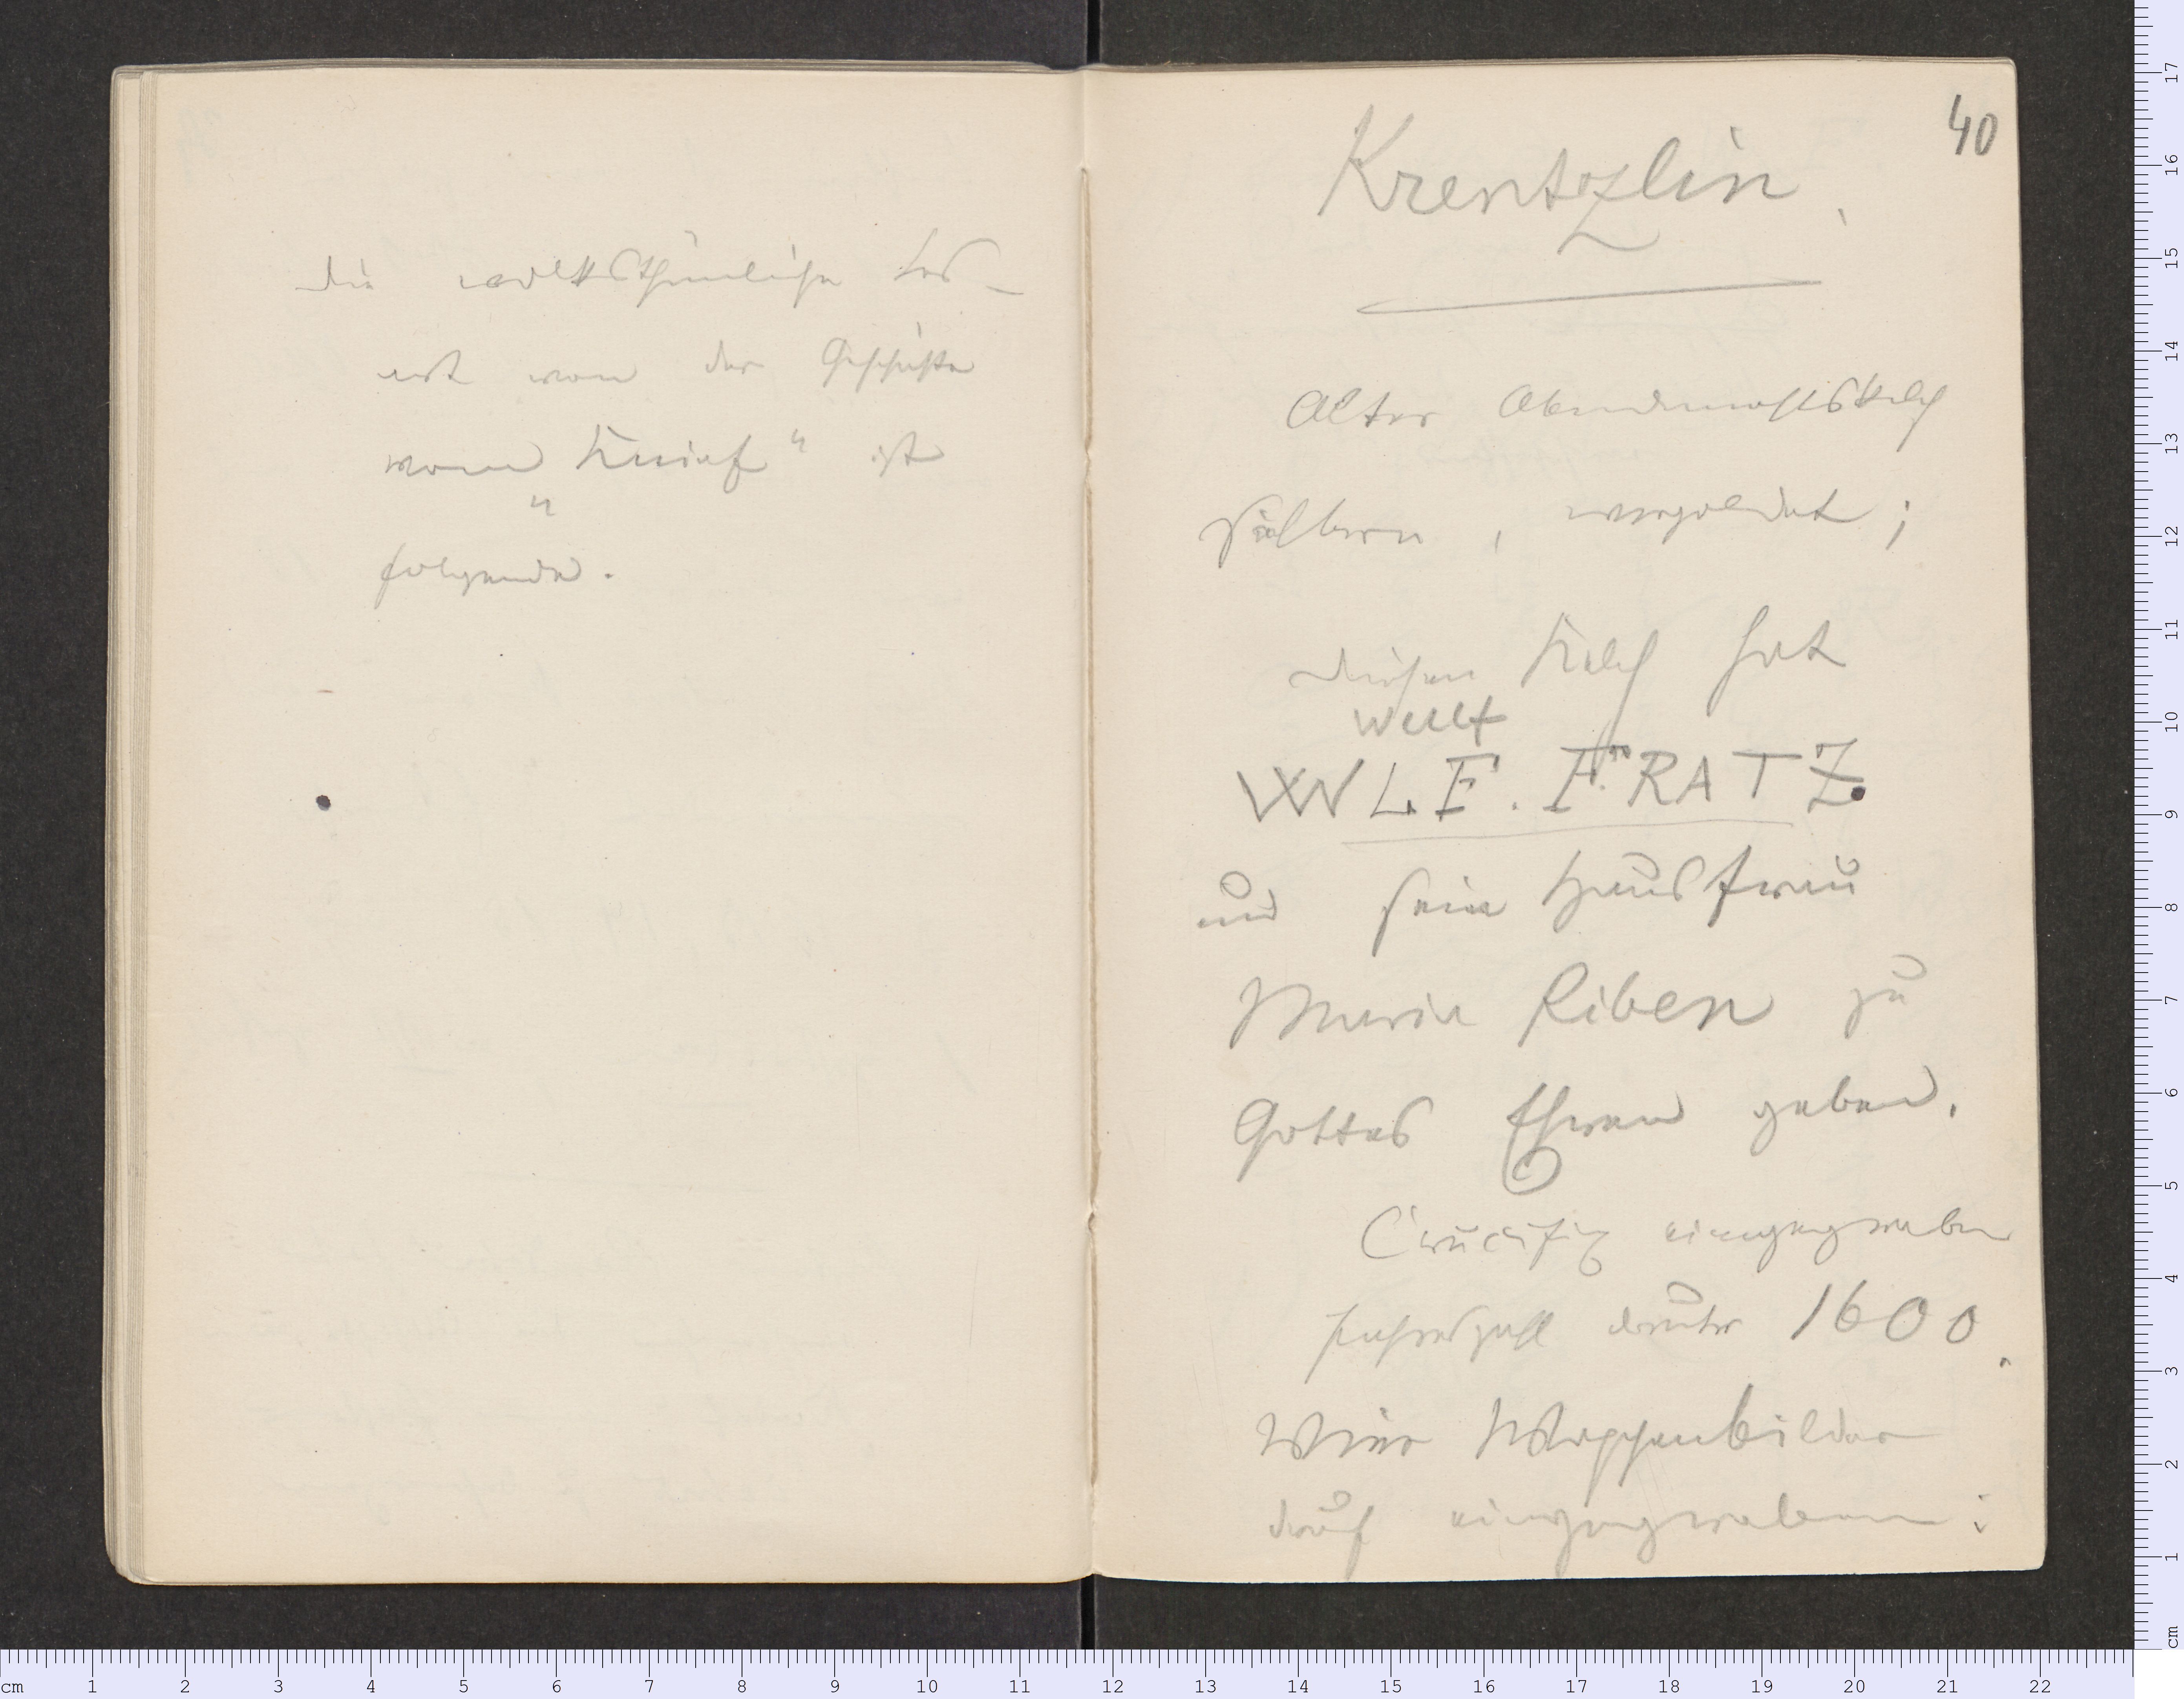 Die volksthümliche Les-
art von der Geschichte
vom „Knief“ ist
folgende.
40
Krentzlin.
Alter Abendmahlskelch
silbern, vergoldet;
Diesen Kelch hat
Wulf
WLF. F. RATZ.
und seine Hausfrau
Maria Riben zu
Gottes Ehren geben.
Crucifix eingegraben
Jahreszahl drunter 1600.
Vier Wappenbilder
drauf eingegraben: